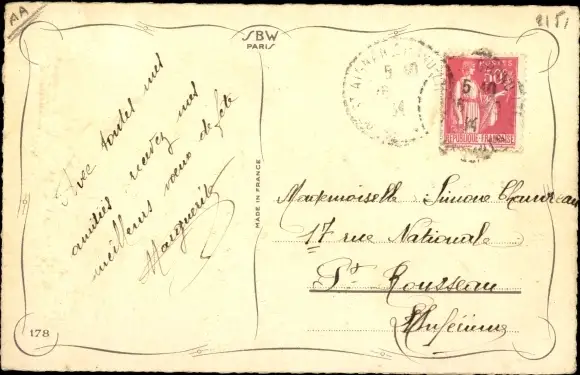 AA
2151
SBW
PARIS
Avec toutes mes
amitiés recevez mes
meilleurs vœux de fête
Marguerite
MADE IN FRANCE
POSTES
50c
REPUBLIQUE FRANÇAISE
Mademoiselle Simone Chauveau
17 rue Nationale
Pt Rousseau
Inférieure
178